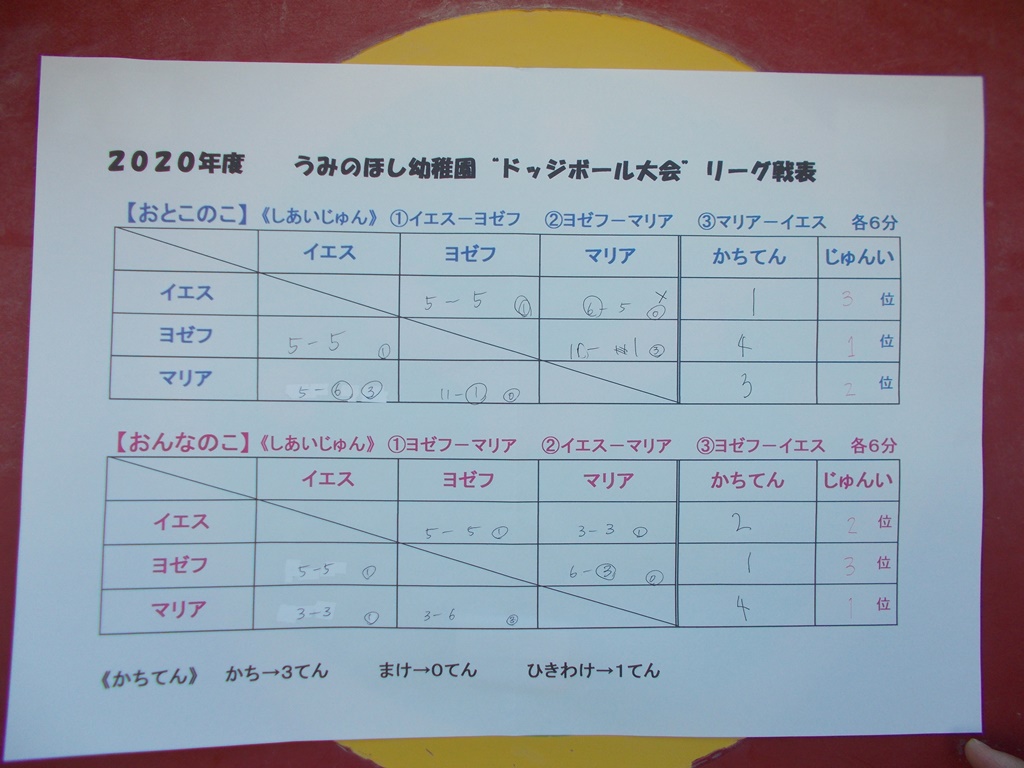 2020年度 うみのほし幼稚園 “ドッジボール大会” リーグ戦表
【おとこのこ】《しあいじゅん》 ①イエスーヨゼフ ②ヨゼフーマリア ③マリアーイエス 各6分
イエス ヨゼフ マリア かちてん じゅんい
イエス 5-5 ① ⑥-5 ⓪ 1 3 位
ヨゼフ 5-5 ① 1 ③ 4 1 位
マリア 5-⑥ ③ 11-① ⓪ 3 2 位
【おんなのこ】《しあいじゅん》 ①ヨゼフーマリア ②イエスーマリア ③ヨゼフーイエス 各6分
イエス ヨゼフ マリア かちてん じゅんい
イエス 5-5 ① 3-3 ① 2 2 位
ヨゼフ 5-5 ① 6-③ ⓪ 1 3 位
マリア 3-3 ① 3-6 ③ 4 1 位
《かちてん》 かち→3てん まけ→0てん ひきわけ→1てん